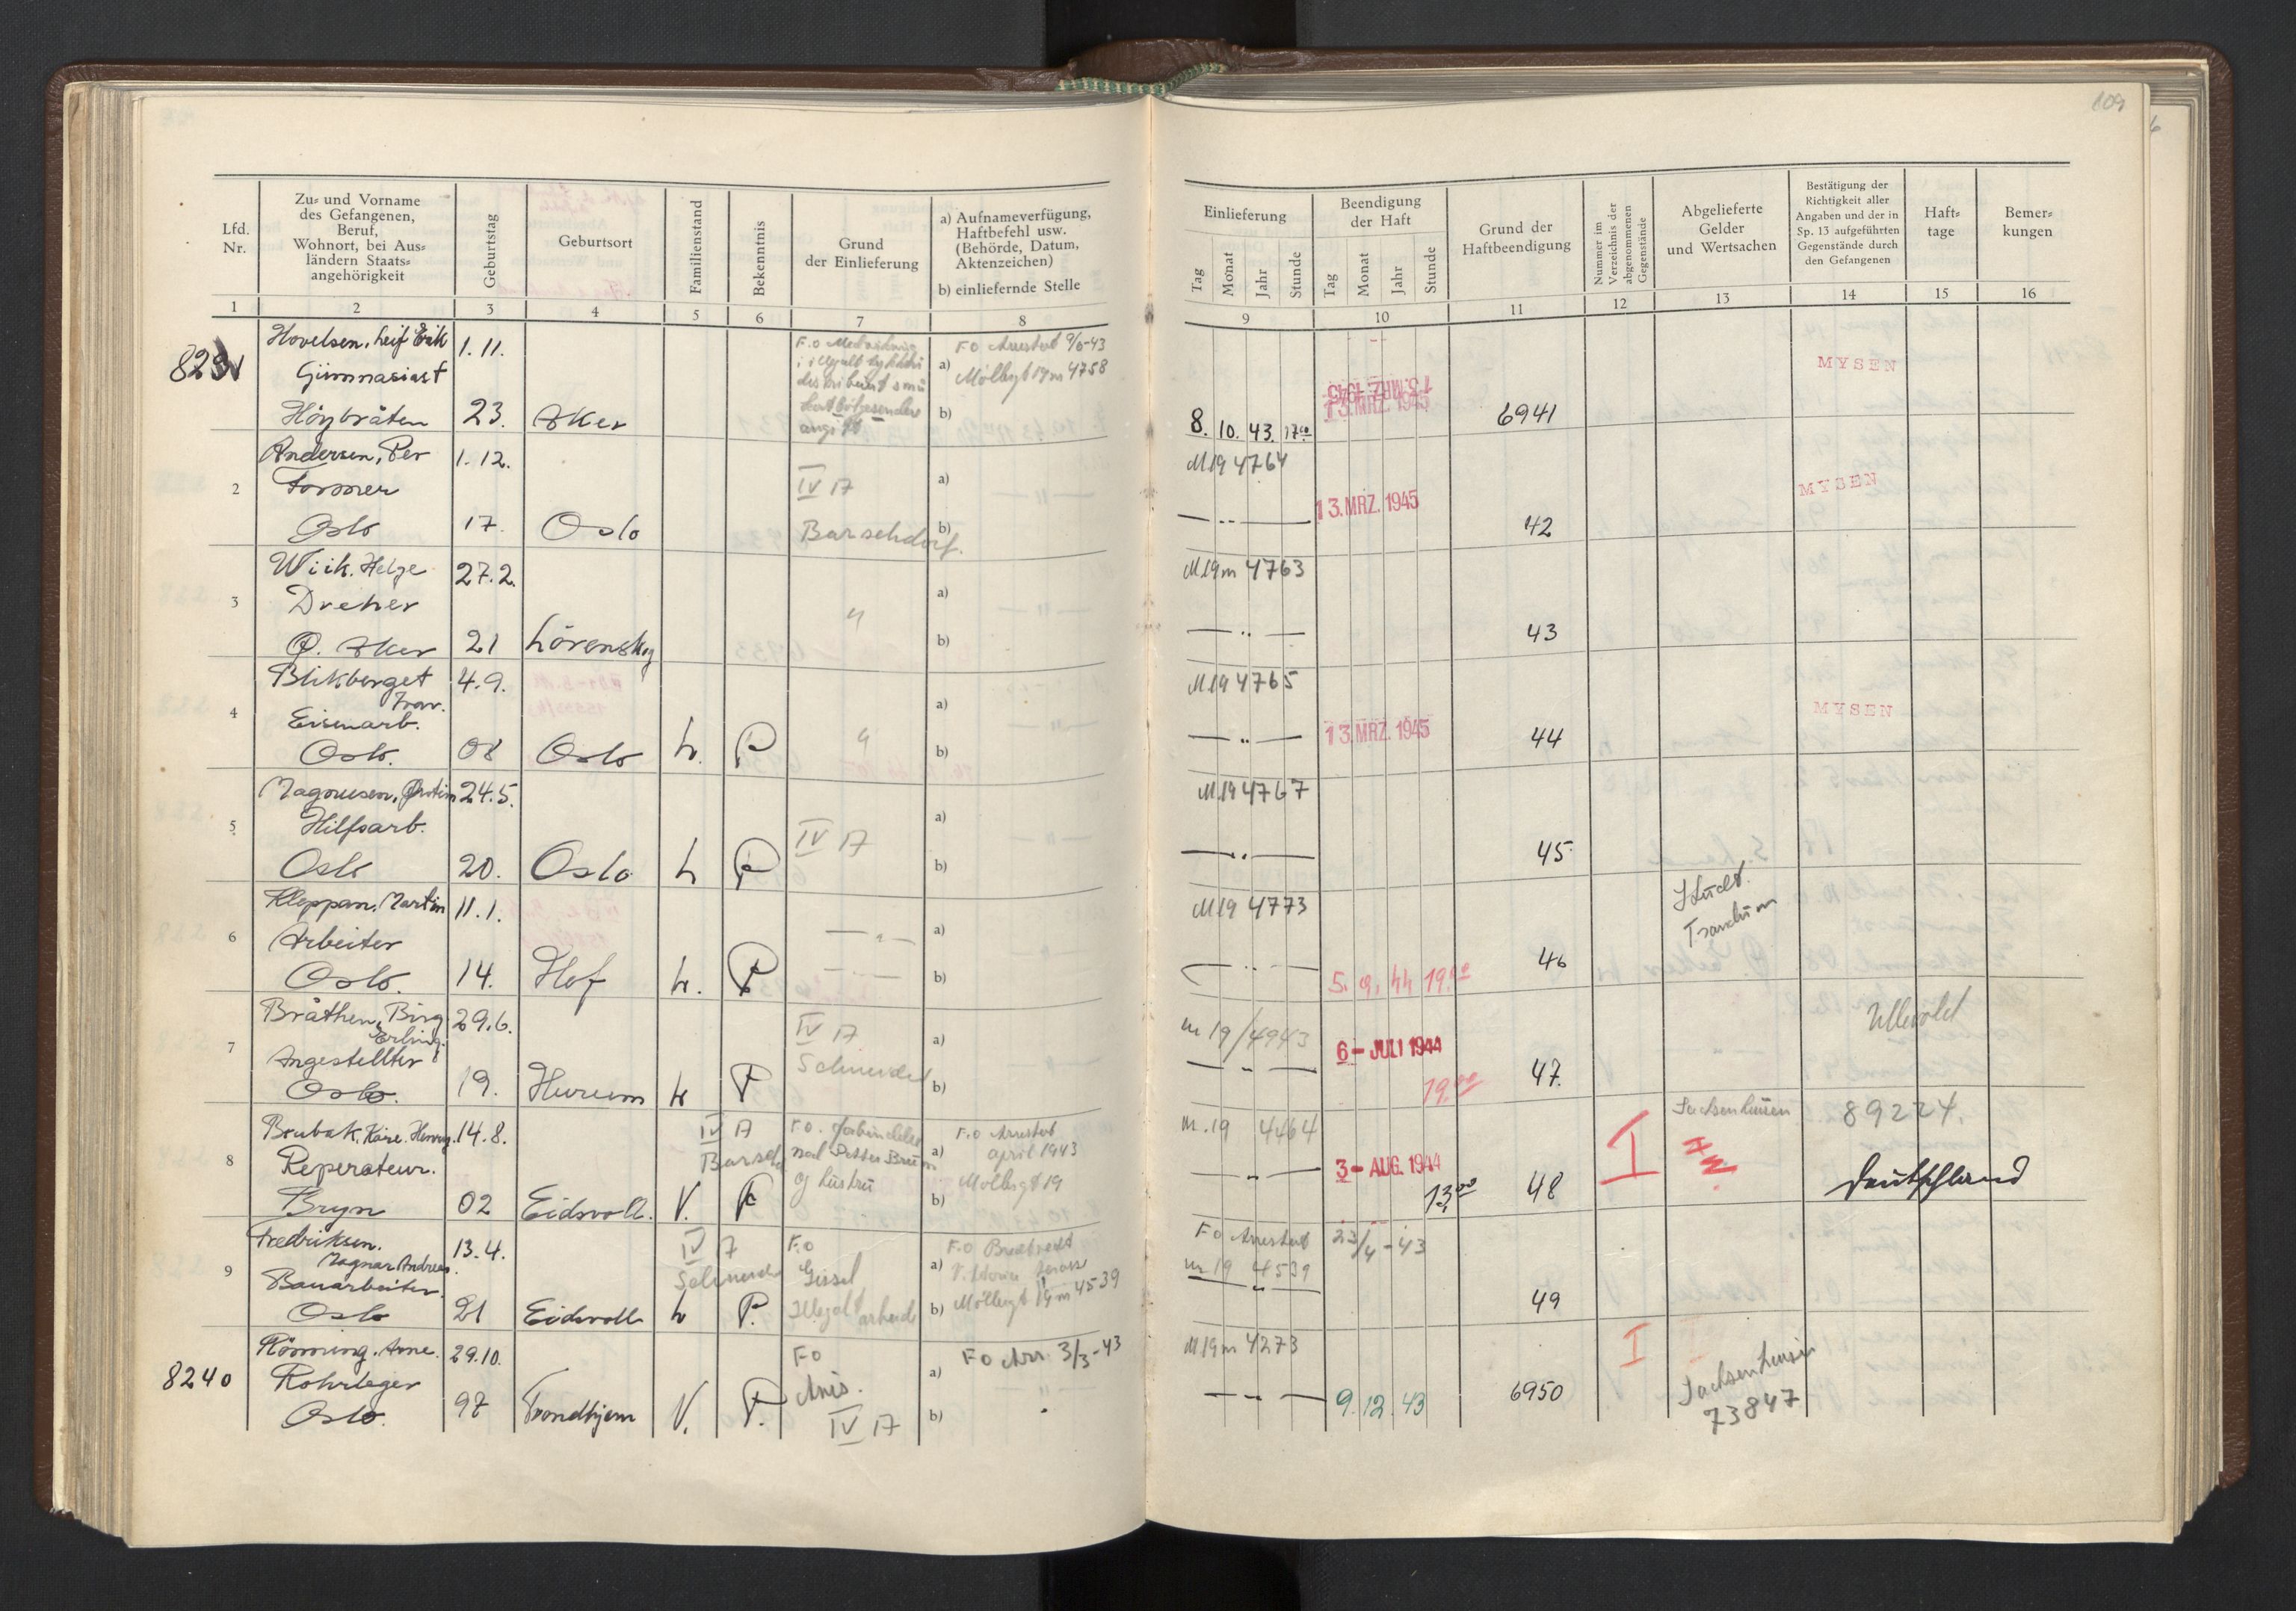 109
Lfd. Nr.
Zu= und Vorname
des Gefangenen,
Beruf,
Wohnort, bei Aus=
ländern Staats=
angehörigkeit
Geburtstag
Geburtsort
Familienstand
Bekenntnis
Grund
der Einlieferung
a) Aufnameverfügung,
Haftbefehl usw.
(Behörde, Datum,
Aktenzeichen)
b) einliefernde Stelle
Einlieferung
Tag Monat Jahr Stunde
Beendigung
der Haft
Tag Monat Jahr Stunde
Grund der
Haftbeendigung
Nummer im
Verzeichnis der
abgenommenen
Gegenstände
Abgelieferte
Gelder
und Wertsachen
Bestätigung der
Richtigkeit aller
Angaben und der in
Sp. 13 aufgeführten
Gegenstände durch
den Gefangenen
Haft=
tage
Bemer=
kungen
1 2 3 4 5 6 7 8 9 10 11 12 13 14 15 16
Hovelsen, Leif Erik 1.11. F.O a) F O Arrestert
Gümnasiast Mollergt 19 m 4758 MYSEN
Høybråten 23. Aker b) 8. 10. 43. 17⁰⁰ 13. MRZ. 1945 13. MRZ. 1945 6941
Andersen, Per 1.12. M 19 4764
2 Former IV 17 a) — " — 13. MRZ. 1945 MYSEN
Oslo 17. Oslo Barschdorf. b) — " — 42
Wiik. Helge 27.2. M 19 m 4763
3 Dreher " a) — " —
Ø. Aker 21 Lörenskog b) — " — 43
Blikberget 4.9. M 19 4765
4 Eisenarb. a) MYSEN
Oslo. 08 Oslo L. P " b) — " — 13. MRZ. 1945 44
Magnusen, 24.5. M 19 4767
5 Hilfsarb. IV 17 a)
Oslo 20. Oslo L P b) — " — 45
Kleppan. Martin 11.1. M 19 4773
6 Arbeiter — " — a) Trandum
Oslo. 14. Hof L. P — " — b) — " — 5. 9. 44 19⁰⁰ 46
Bråthen, Birg. 29.6. IV 17 m 19/4943 Ullevold
Erling.
7 Angestellter Schneider a) 6 – JULI 1944
Oslo. 19. Hurum L P b) — " — 19⁰⁰ 47.
Brubak, Kåre. Henry. 14.8. IV 17 F.O. F.O Arrestert m. 19 4464 Sachsenhausen 89224.
8 Reperateur. Barsch a) april 1943 — " — 3 – AUG. 1944 I
Bryn 02 Eidsvoll. V. P og b) Møllergt 19 13⁰⁰ 48 Deutschland
Fredriksen. 13.4. IV 7 F.O F.O Bredtvedt F O Arrestert 23/4 – 43
Magnar Andreas.
9 Bauarbeiter. Schneider Gissel a) m 19 4539
Oslo 21 Eidsvoll L P. Illegalt arbeid b) Møllergt 19 m 4539 — " — 49
Rönning. Arne. 29.10. F O F O Arr. 3/3 – 43 M 19 m 4273 I
8240 Rohrleger Anis. a) Sachsenhausen
Oslo. 97 Trondhjem V. P. IV 17 b) — " — 9. 12. 43 6950 73847